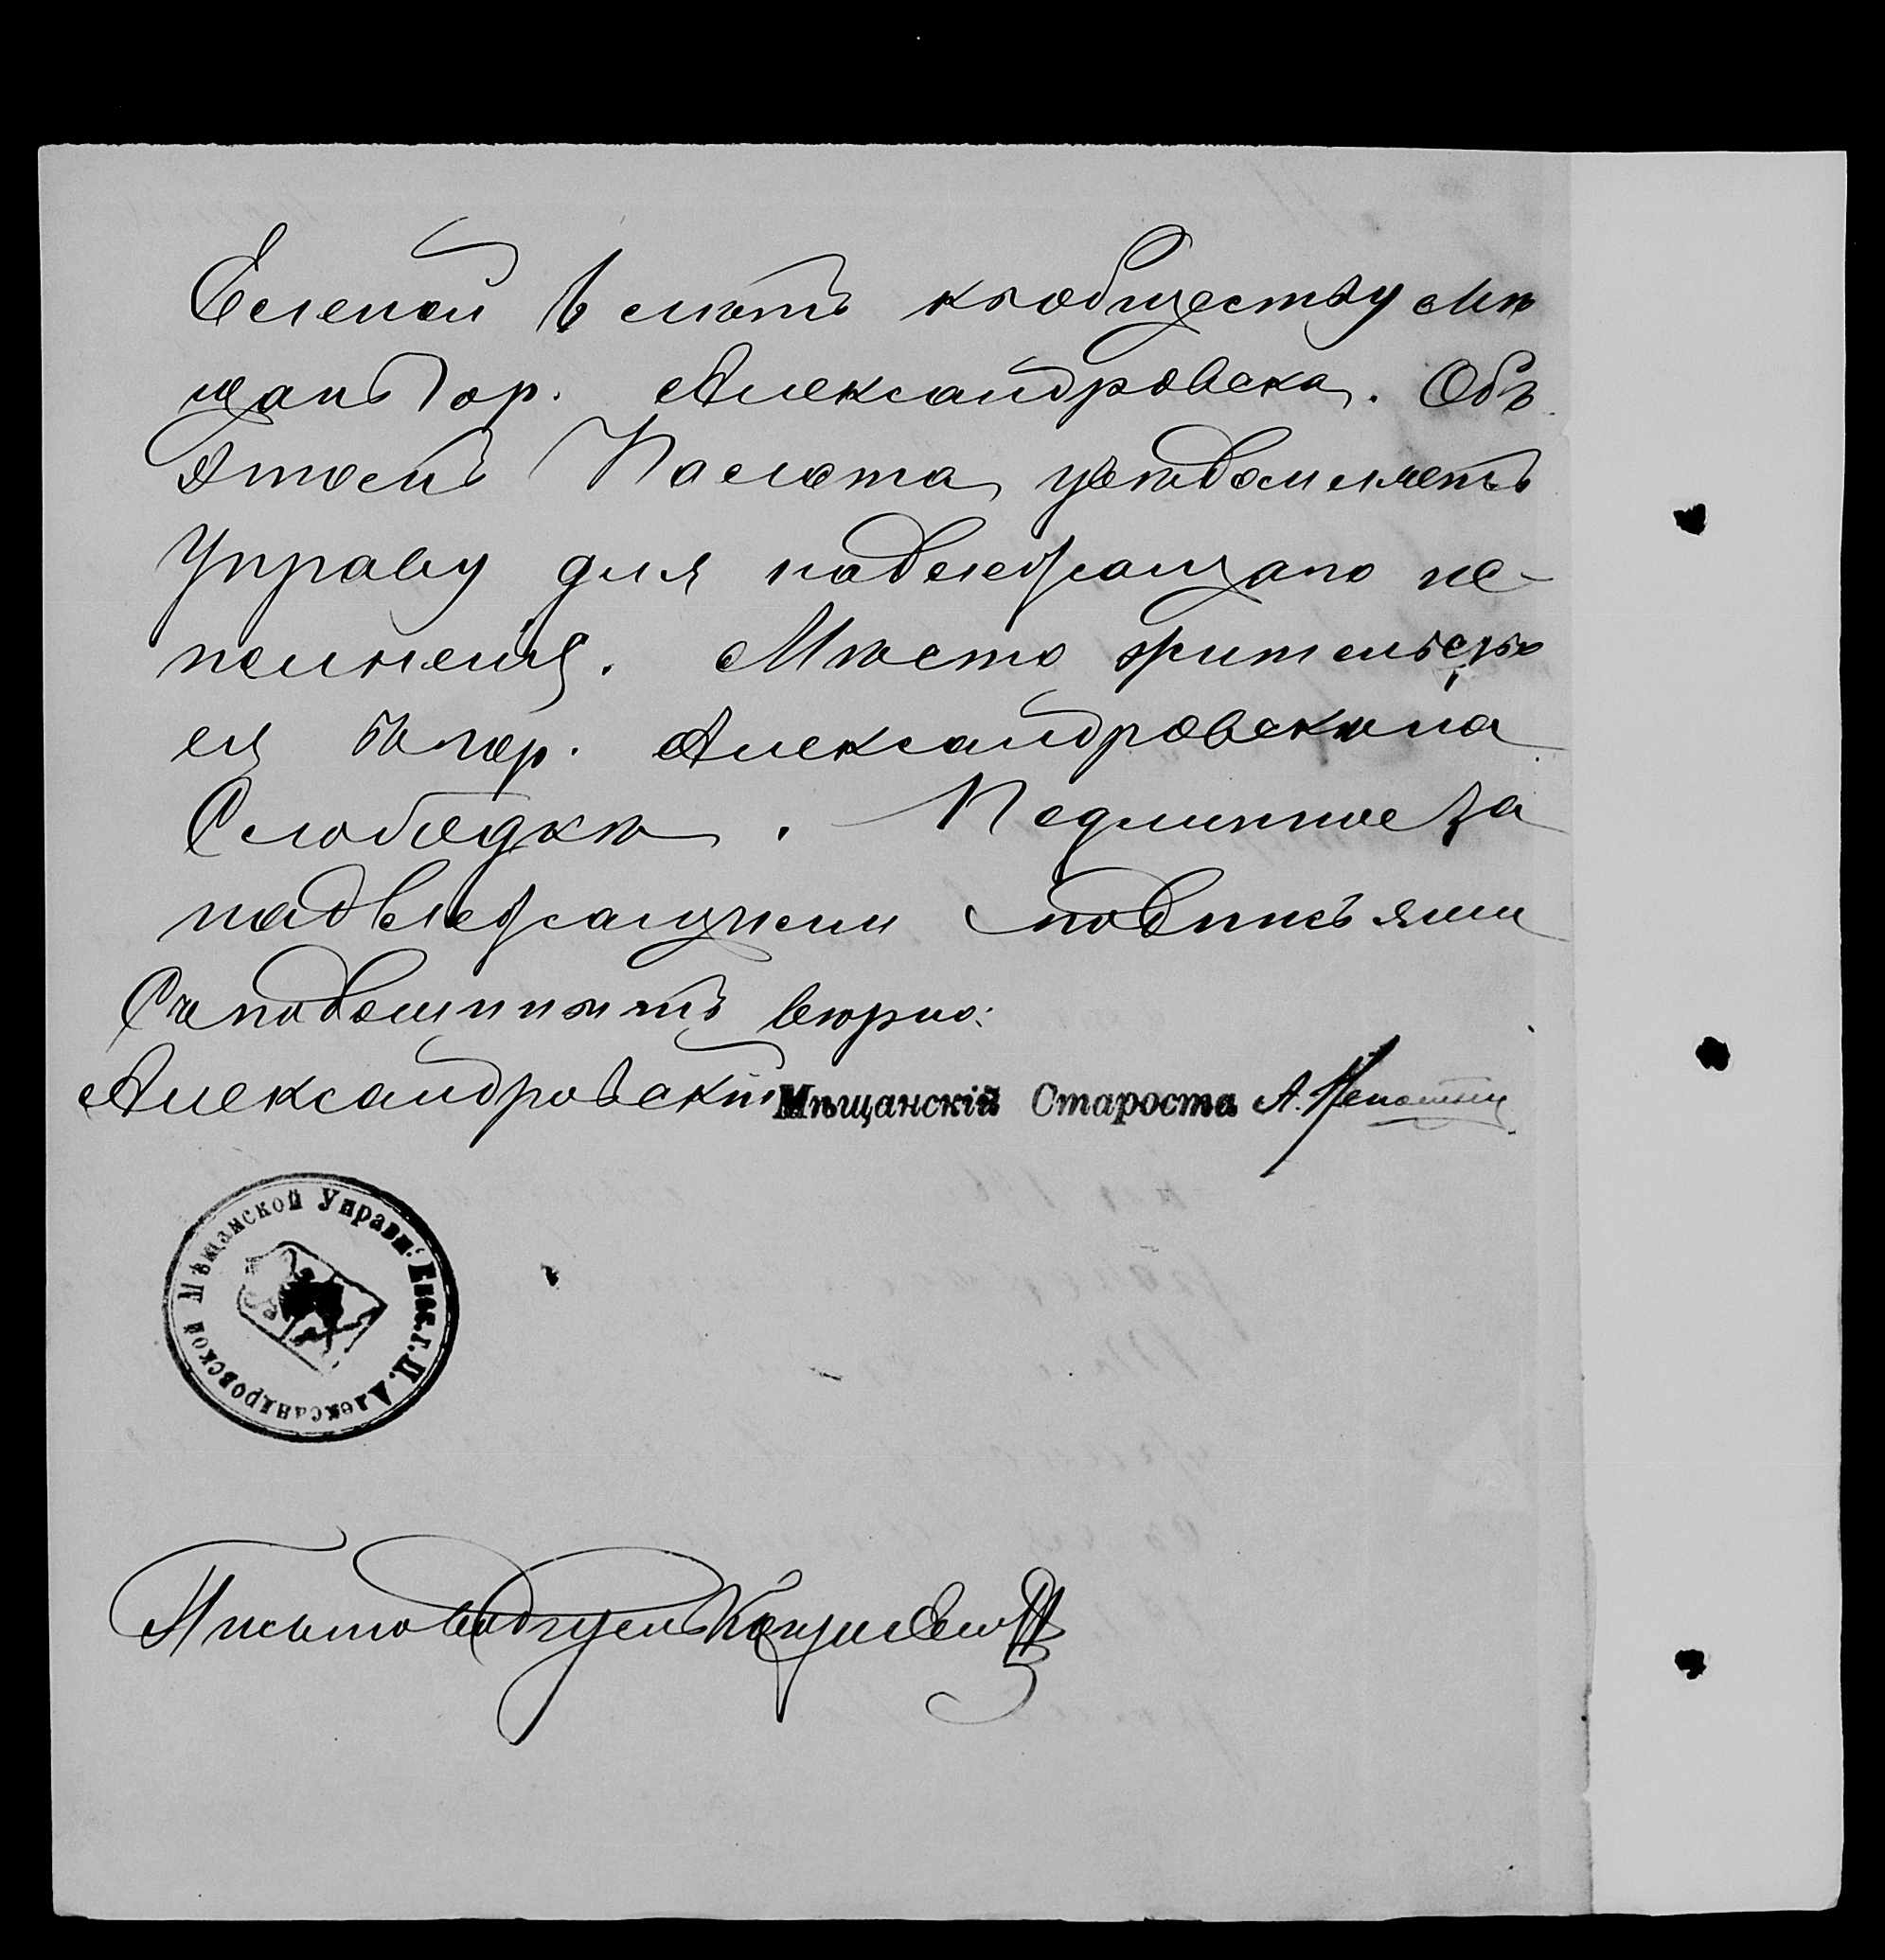 Еленой 6 лѣтъ къ обществу мѣ
щанъ гор. Александровска. Объ
этомъ Палата увѣдомляетъ
Управу для надлежащаго ис-
полненія. Мѣсто жительство
ея въ гор. Александровскѣ на
Слободкѣ. Подлинное за
надлежащими подписъями
Съ подлиннымъ вѣрно:
Александровскій Мѣщанскій Староста А.
Александровской Мѣщанской Управы. Екат. г.
Письмоводитель